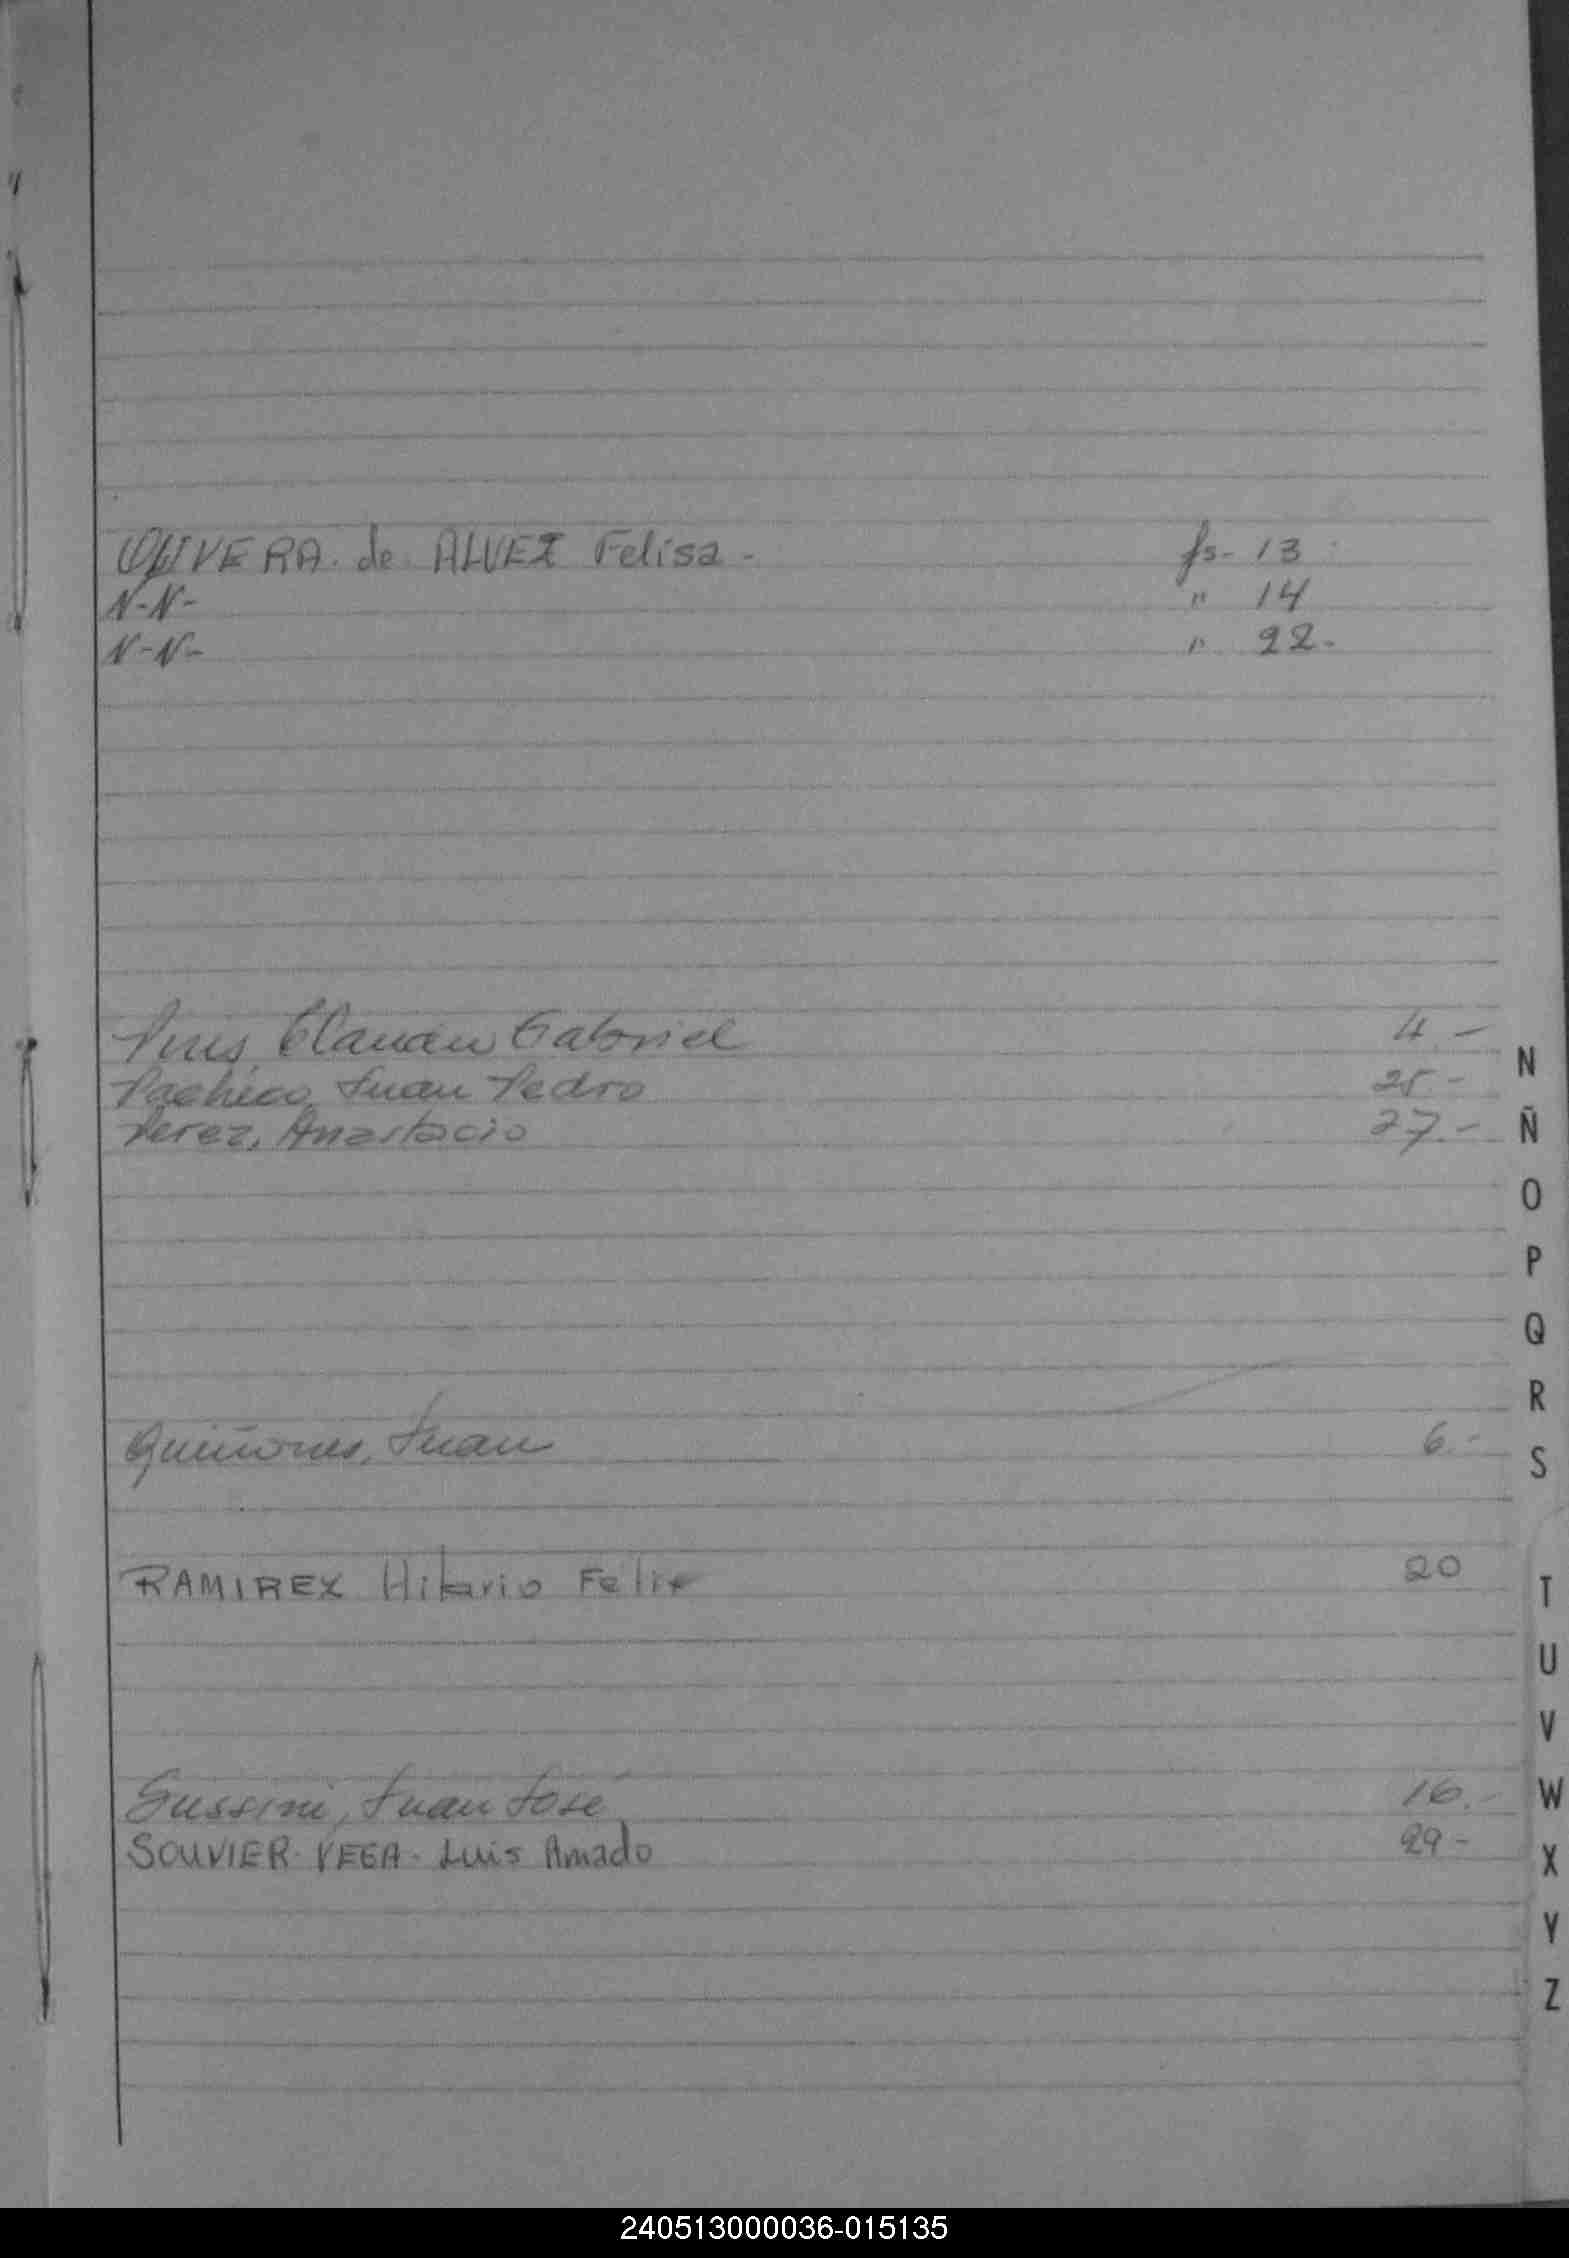 OLIVERA. de ALVEZ Felisa - fs- 13
N-N- " 14
N-N- " 22-
Gabriel 4.-
Pacheco, Juan Pedro 25-
Perez, Anastacio 27.-
Quiñones, Juan 6.-
RAMIREZ Hilario Felix 20
Sussini, Juan José 16.-
SOUVIER-VEGA- Luis Amado 29-
N
Ñ
O
P
Q
R
S
T
U
V
W
X
Y
Z
240513000036-015135